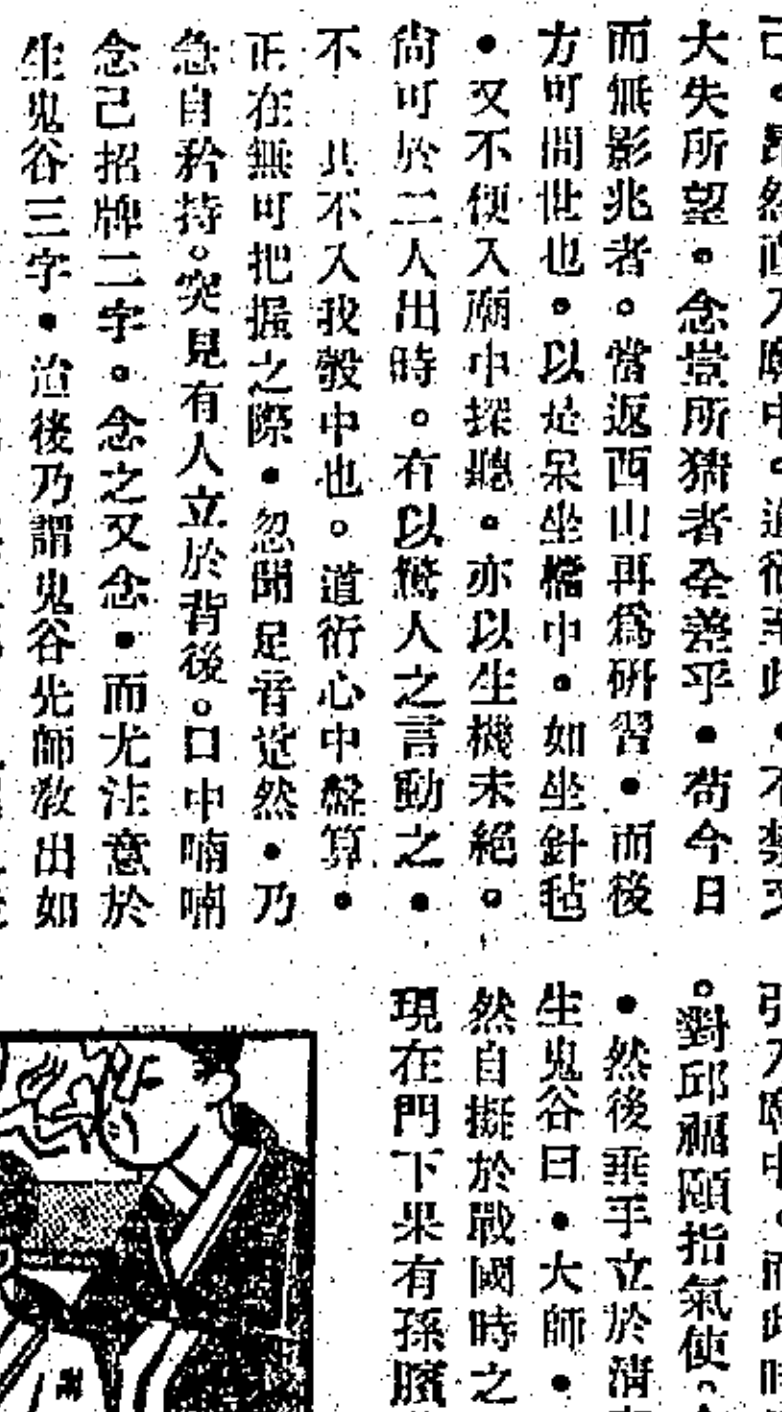 大失所望。念豈所猜者全差乎•苟今日
而無影兆者。當返西山再爲研習•而後
方可問世也。以是呆坐檐中。如坐針毡
•又不便入廟中探聽。亦以生機未絕。
尙可於二人出時。有以驚人之言動之•
不 其不入我彀中也。道衍心中盤算•
正在無可把握之際•忽聞足音跫然•乃
急自矜持。突見有人立於背後。口中喃喃
念己招牌二字。念之又念•而尤注意於
生鬼谷三字•迨後乃謂鬼谷先師敎出如
。對邱福頤指氣使
•然後垂手立於清
生鬼谷曰•大師•
然自擬於戰國時之
現在門下果有孫臏